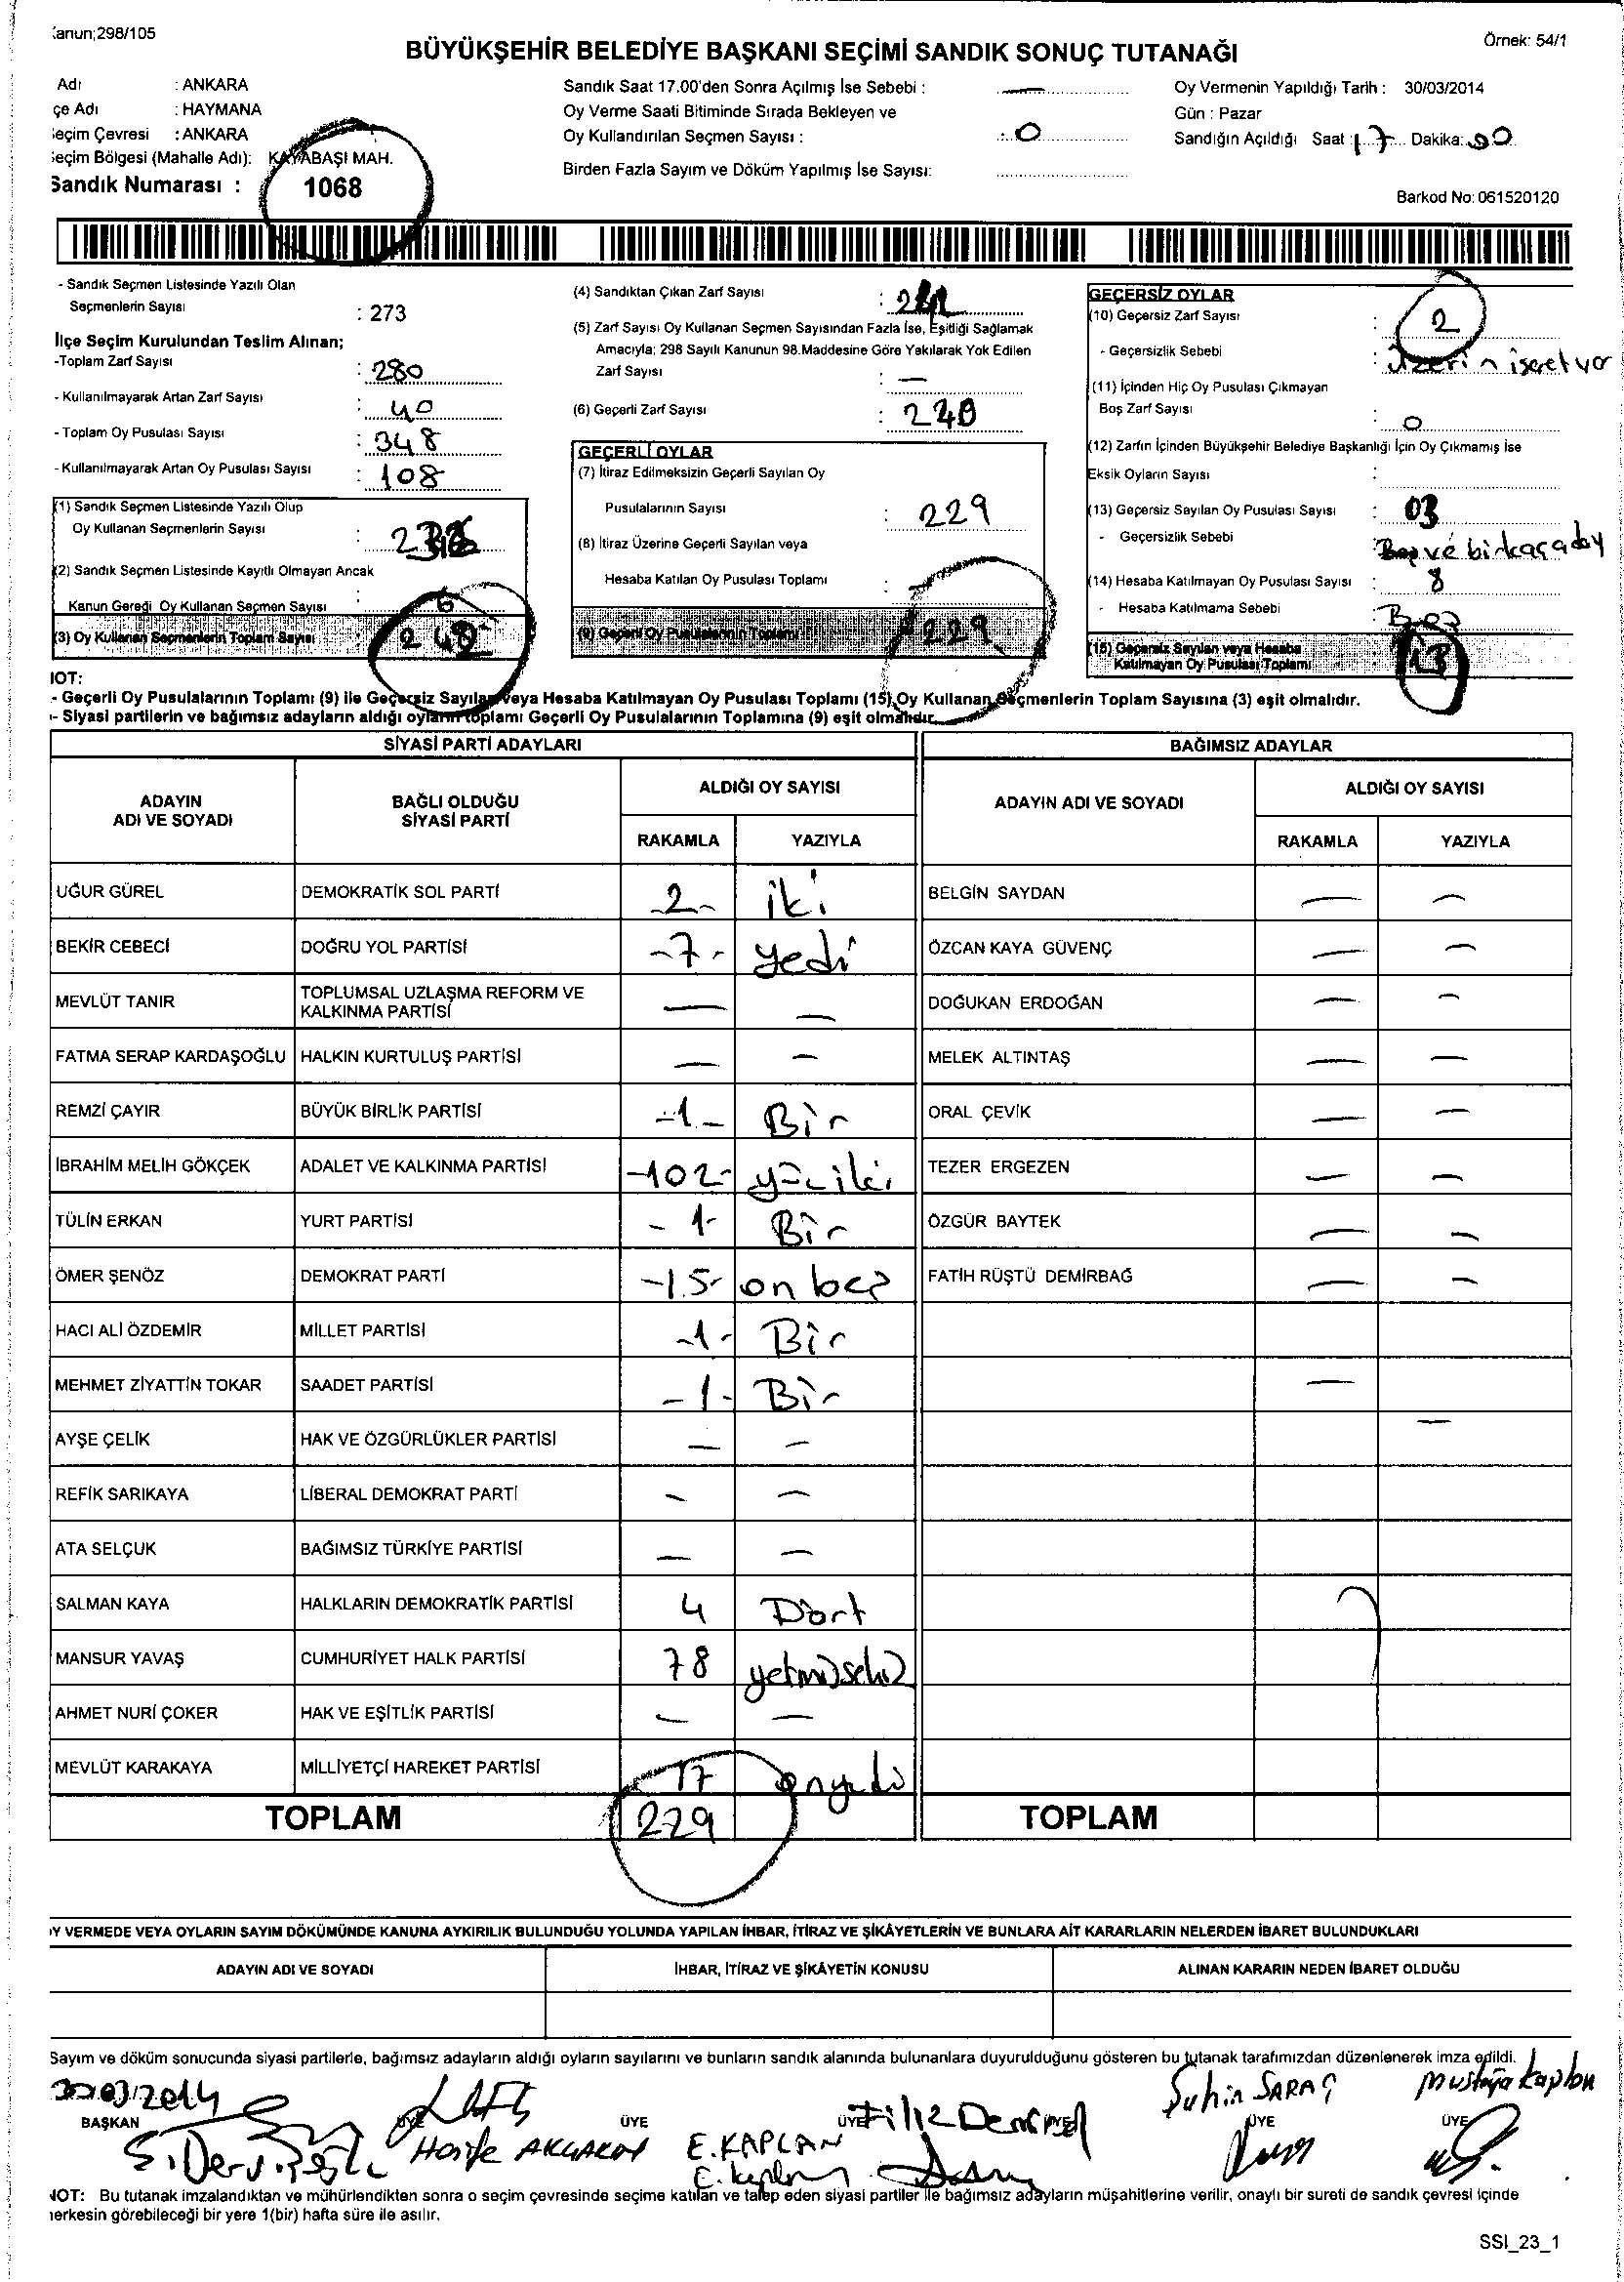 Kanun;298/105
Örnek: 54/1
BÜYÜKŞEHİR BELEDİYE BAŞKANI SEÇİMİ SANDIK SONUÇ TUTANAĞI
Adı : ANKARA
çe Adı : HAYMANA
eçim Çevresi : ANKARA
eçim Bölgesi (Mahalle Adı): KAYABAŞI MAH.
Sandık Numarası : 1068
Sandık Saat 17.00'den Sonra Açılmış İse Sebebi : —
Oy Verme Saati Bitiminde Sırada Bekleyen ve
Oy Kullandırılan Seçmen Sayısı : 0
Birden Fazla Sayım ve Döküm Yapılmış İse Sayısı:
Oy Vermenin Yapıldığı Tarih : 30/03/2014
Gün : Pazar
Sandığın Açıldığı Saat 17 Dakika:
Barkod No: 061520120
- Sandık Seçmen Listesinde Yazılı Olan
Seçmenlerin Sayısı : 273
İlçe Seçim Kurulundan Teslim Alınan;
-Toplam Zarf Sayısı : 280
- Kullanılmayarak Artan Zarf Sayısı : 40
- Toplam Oy Pusulası Sayısı : 348
- Kullanılmayarak Artan Oy Pusulası Sayısı : 108
(1) Sandık Seçmen Listesinde Yazılı Olup
Oy Kullanan Seçmenlerin Sayısı :
(2) Sandık Seçmen Listesinde Kayıtlı Olmayan Ancak
Kanun Gereği Oy Kullanan Seçmen Sayısı : 6
(3) Oy Kullanan Seçmenlerin Toplam Sayısı 242
(4) Sandıktan Çıkan Zarf Sayısı :
(5) Zarf Sayısı Oy Kullanan Seçmen Sayısından Fazla İse, Eşitliği Sağlamak
Amacıyla; 298 Sayılı Kanunun 98.Maddesine Göre Yakılarak Yok Edilen
Zarf Sayısı : —
(6) Geçerli Zarf Sayısı : 240
GEÇERLİ OYLAR
(7) İtiraz Edilmeksizin Geçerli Sayılan Oy
Pusulalarının Sayısı : 229
(8) İtiraz Üzerine Geçerli Sayılan veya
Hesaba Katılan Oy Pusulası Toplamı :
(9) Geçerli Oy Pusulalarının Toplamı 229
GEÇERSİZ OYLAR
(10) Geçersiz Zarf Sayısı : 2
- Geçersizlik Sebebi : üzerin işaret var
(11) İçinden Hiç Oy Pusulası Çıkmayan
Boş Zarf Sayısı : 0
(12) Zarfın İçinden Büyükşehir Belediye Başkanlığı İçin Oy Çıkmamış İse
Eksik Oyların Sayısı :
(13) Geçersiz Sayılan Oy Pusulası Sayısı : 03
- Geçersizlik Sebebi : ve birkaç aday
(14) Hesaba Katılmayan Oy Pusulası Sayısı : 8
- Hesaba Katılmama Sebebi : Boş
(15) Geçersiz Sayılan veya Hesaba
Katılmayan Oy Pusulası Toplamı 13
NOT:
- Geçerli Oy Pusulalarının Toplamı (9) ile Geçersiz Sayılan veya Hesaba Katılmayan Oy Pusulası Toplamı (15) Oy Kullanan Seçmenlerin Toplam Sayısına (3) eşit olmalıdır.
- Siyasi partilerin ve bağımsız adayların aldığı oyların toplamı Geçerli Oy Pusulalarının Toplamına (9) eşit olmalıdır.
SİYASİ PARTİ ADAYLARI BAĞIMSIZ ADAYLAR
ADAYIN ADI VE SOYADI BAĞLI OLDUĞU SİYASİ PARTİ ALDIĞI OY SAYISI ADAYIN ADI VE SOYADI ALDIĞI OY SAYISI
RAKAMLA YAZIYLA RAKAMLA YAZIYLA
UĞUR GÜREL DEMOKRATİK SOL PARTİ 2- iki BELGİN SAYDAN — —
BEKİR CEBECİ DOĞRU YOL PARTİSİ -7- yedi ÖZCAN KAYA GÜVENÇ — —
MEVLÜT TANIR TOPLUMSAL UZLAŞMA REFORM VE KALKINMA PARTİSİ — — DOĞUKAN ERDOĞAN — —
FATMA SERAP KARDAŞOĞLU HALKIN KURTULUŞ PARTİSİ — — MELEK ALTINTAŞ — —
REMZİ ÇAYIR BÜYÜK BİRLİK PARTİSİ -1- Bir ORAL ÇEVİK — —
İBRAHİM MELİH GÖKÇEK ADALET VE KALKINMA PARTİSİ -102- yüziki TEZER ERGEZEN — —
TÜLİN ERKAN YURT PARTİSİ -1- Bir ÖZGÜR BAYTEK — —
ÖMER ŞENÖZ DEMOKRAT PARTİ -15- on beş FATİH RÜŞTÜ DEMİRBAĞ — —
HACI ALİ ÖZDEMİR MİLLET PARTİSİ -1- Bir
MEHMET ZİYATTİN TOKAR SAADET PARTİSİ -1- Bir —
AYŞE ÇELİK HAK VE ÖZGÜRLÜKLER PARTİSİ — — —
REFİK SARIKAYA LİBERAL DEMOKRAT PARTİ — —
ATA SELÇUK BAĞIMSIZ TÜRKİYE PARTİSİ — —
SALMAN KAYA HALKLARIN DEMOKRATİK PARTİSİ 4 Dört
MANSUR YAVAŞ CUMHURİYET HALK PARTİSİ 78 yetmişsekiz
AHMET NURİ ÇOKER HAK VE EŞİTLİK PARTİSİ — —
MEVLÜT KARAKAYA MİLLİYETÇİ HAREKET PARTİSİ 17 onyedi
TOPLAM 229 TOPLAM
OY VERMEDE VEYA OYLARIN SAYIM DÖKÜMÜNDE KANUNA AYKIRILIK BULUNDUĞU YOLUNDA YAPILAN İHBAR, İTİRAZ VE ŞİKÂYETLERİN VE BUNLARA AİT KARARLARIN NELERDEN İBARET BULUNDUKLARI
ADAYIN ADI VE SOYADI İHBAR, İTİRAZ VE ŞİKÂYETİN KONUSU ALINAN KARARIN NEDEN İBARET OLDUĞU
Sayım ve döküm sonucunda siyasi partilerle, bağımsız adayların aldığı oyların sayılarını ve bunların sandık alanında bulunanlara duyurulduğunu gösteren bu tutanak tarafımızdan düzenlenerek imza edildi.
30/03/2014 Şahin SARAÇ Mustafa Kaplan
BAŞKAN ÜYE ÜYE ÜYE Filiz Demirel ÜYE ÜYE
E. KAPLAN
E. Kaplan
NOT: Bu tutanak imzalandıktan ve mühürlendikten sonra o seçim çevresinde seçime katılan ve talep eden siyasi partiler ile bağımsız adayların müşahitlerine verilir, onaylı bir sureti de sandık çevresi içinde
herkesin görebileceği bir yere 1(bir) hafta süre ile asılır.
SSI_23_1